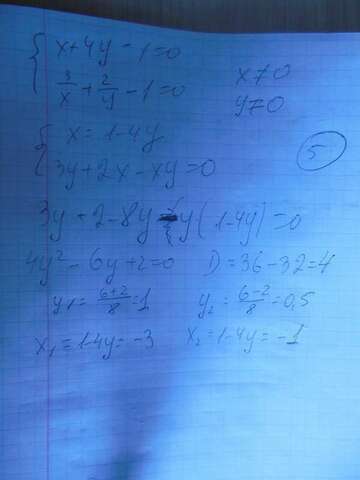 x+4y-1=0
3/x + 2/y - 1=0
x≠0
y≠0
5
x=1-4y
3y+2x-xy=0
3y+2-8y-y(1-4y)=0
4y²-6y+2=0 D=36-32=4
y₁=(6+2)/8=1 y₂=(6-2)/8=0,5
x₁=1-4y=-3 x₂=1-4y=-1